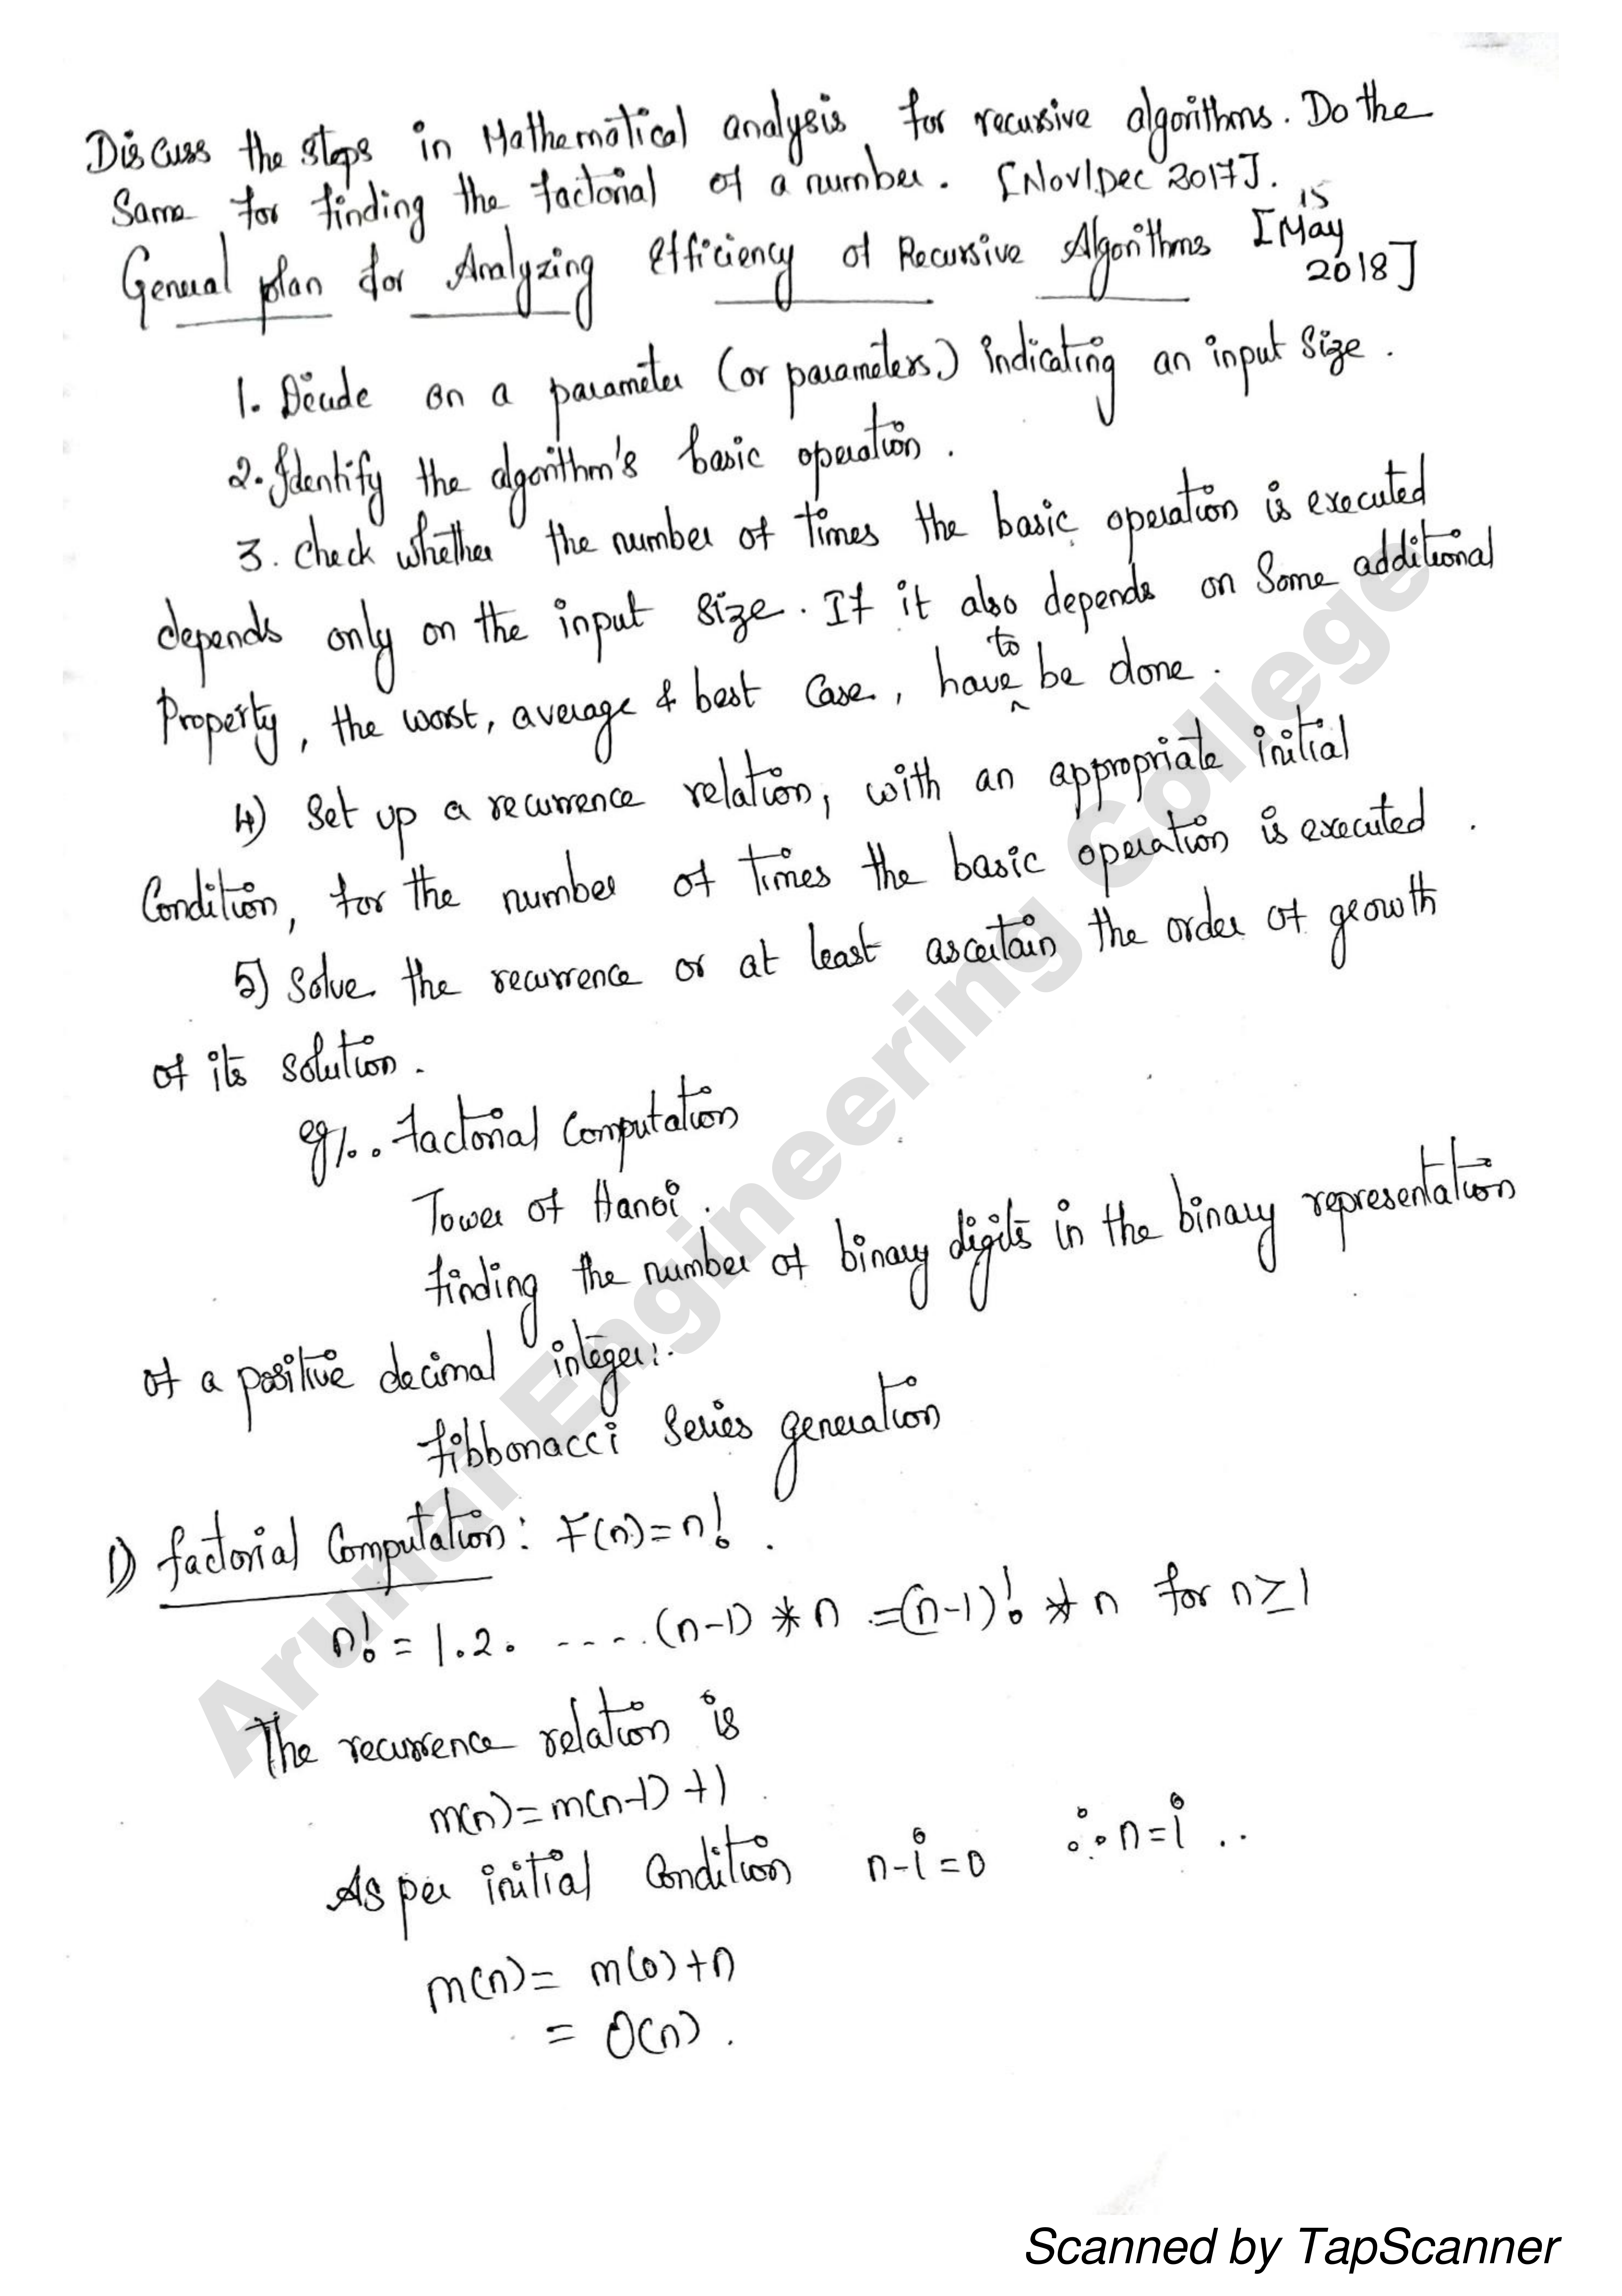 Discuss the steps in Mathematical analysis for recursive algorithms. Do the
Same for finding the factorial of a number. [Nov/Dec 2017].
15
General plan for Analyzing Efficiency of Recursive Algorithms [May
2018]
1. Decide on a parameter (or parameters) indicating an input size.
2. Identify the algorithm's basic operation.
3. Check whether the number of times the basic operation is executed
depends only on the input size. If it also depends on some additional
Property, the worst, average & best case, have to be done.
4) Set up a recurrence relation, with an appropriate initial
Condition, for the number of times the basic operation is executed.
5) Solve the recurrence or at least ascertain the order of growth
of its solution.
eg/.. factorial Computation
Tower of Hanoi.
finding the number of binary digits in the binary representation
of a positive decimal integer.
fibbonacci Series generation
1) factorial Computation: F(n)=n!.
n! = 1.2. ..... (n-1) * n = (n-1)! * n for n≥1
The recurrence relation is
m(n)=m(n-1)+1
As per initial Condition n-i=0 ∴ n=i ..
m(n)= m(0)+n
= O(n).
Arunai Engineering College
Scanned by TapScanner